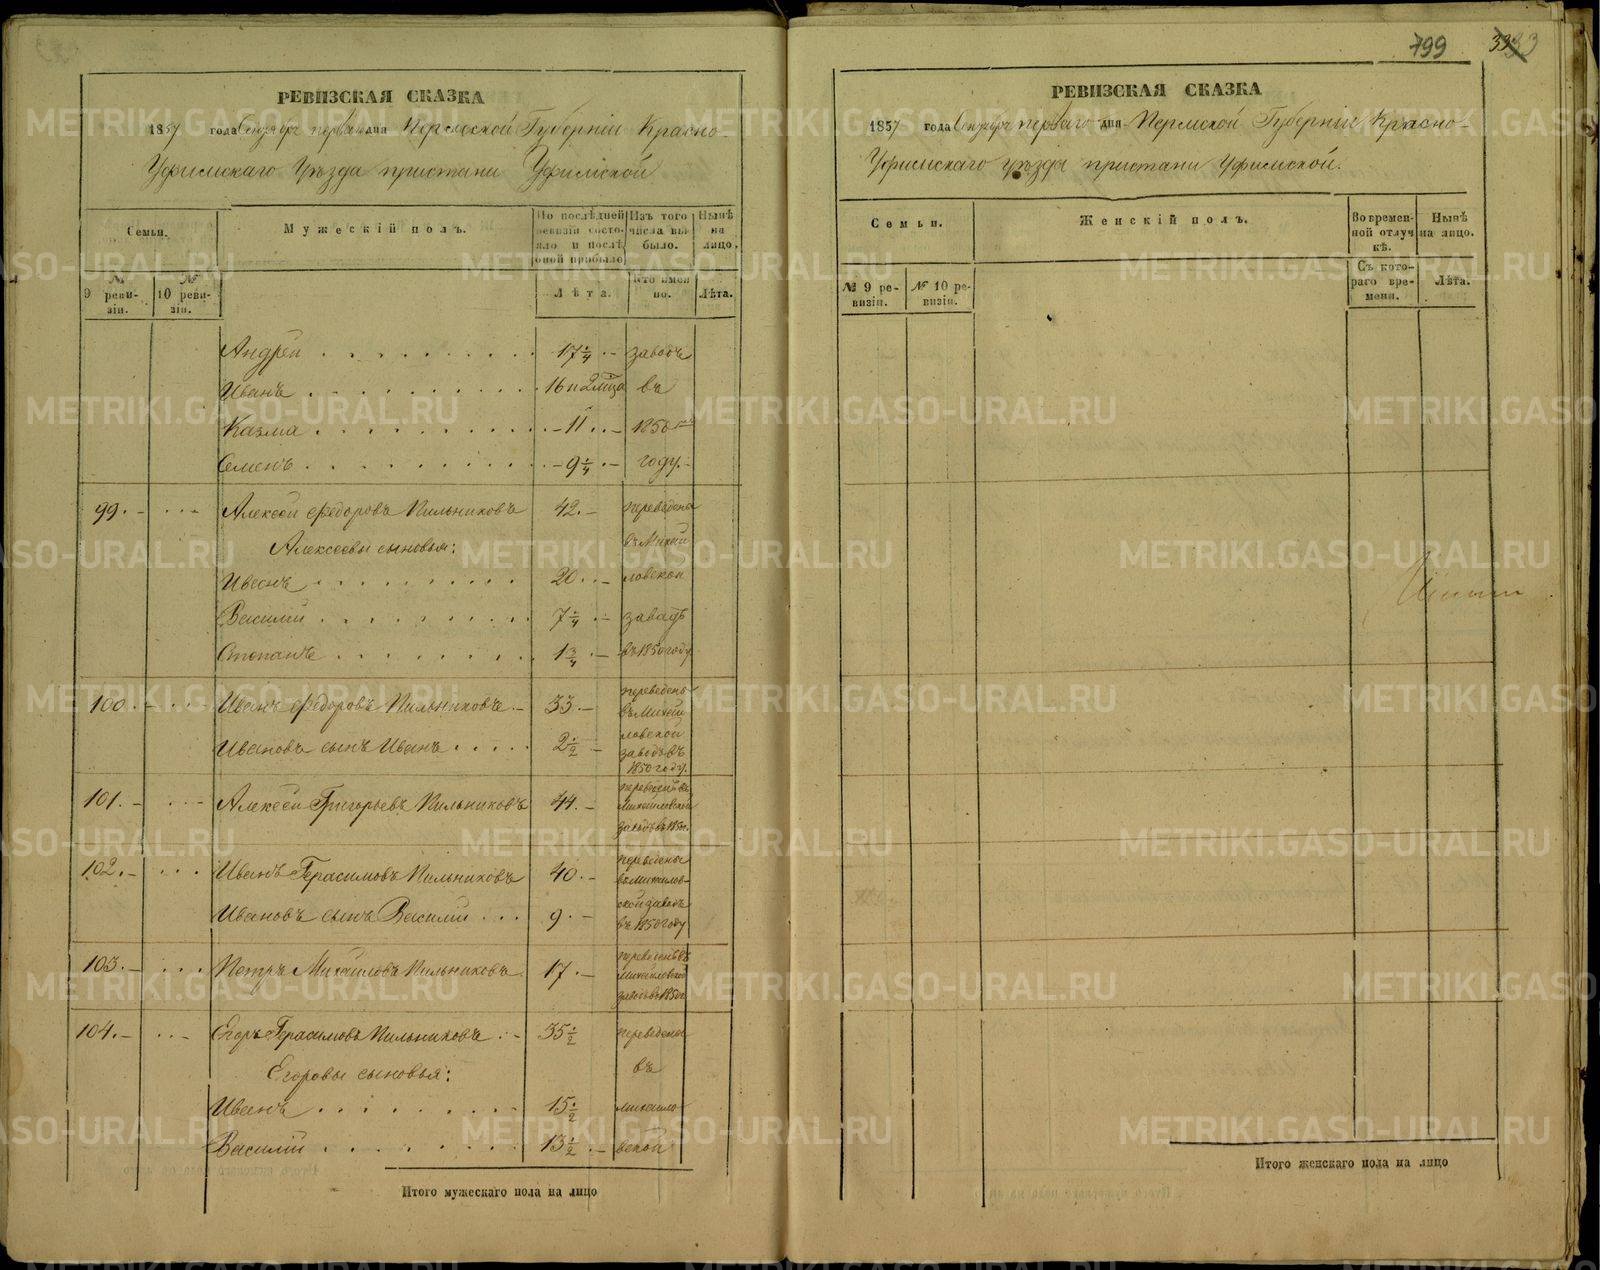 РЕВИЗСКАЯ СКАЗКА
1857 года Сентября первого дня Пермской Губерніи Красно
Уфимскаго Уѣзда пристани Уфимской
Семьи. Мужескій полъ. По послѣдней ревизіи состояло и послѣ оной прибыло Изъ того числа выбыло. Нынѣ на лицо.
№ 9 ревизіи. № 10 ревизіи. Лѣта. Кто имено. Лѣта.
Андрей 17 1/4 заводъ
Иванъ 16 и 2 мѣца въ
Казма 11 1850
Семенъ 9 1/4 году.
99. Алексѣй Федоровъ Пильниковъ 42. переведены
Алексѣевы сыновья: въ Михай
Иванъ 20 ловской
Василій 7 1/4 заводъ
Степанъ 1 3/4 въ 1850 году
100. Иванъ Федоровъ Пильниковъ 33. переведены въ Михай
Ивановъ сынъ Иванъ 2 1/2 ловской заводъ въ 1850 году.
101. Алексѣй Григорьевъ Пильниковъ 44. переведенъ въ Михайловской заводъ въ 1850г.
102. Иванъ Герасимовъ Пильниковъ 40. переведены въ Михайлов-
Ивановъ сынъ Василій 9. ской заводъ въ 1850 году
103. Петръ Михайловъ Пильниковъ 17. переведенъ въ Михайловской заводъ въ 1850г
104. Егоръ Герасимовъ Пильниковъ 35 1/2 переведены
Егоровы сыновья: въ
Иванъ 15 1/2 михайло
Василій 13 1/2 вской
Итого мужескаго пола на лицо
799 33
РЕВИЗСКАЯ СКАЗКА
1857 года Сентября перваго дня Пермской Губерніи Красно-
Уфимскаго уѣзда пристани Уфимской.
Семьи. Женскій полъ. Во временной отлучкѣ. Нынѣ на лицо.
№ 9 ревизіи. № 10 ревизіи. Съ котораго времени. Лѣта.
Итого женскаго пола на лицо
METRIKI.GASO-URAL.RU